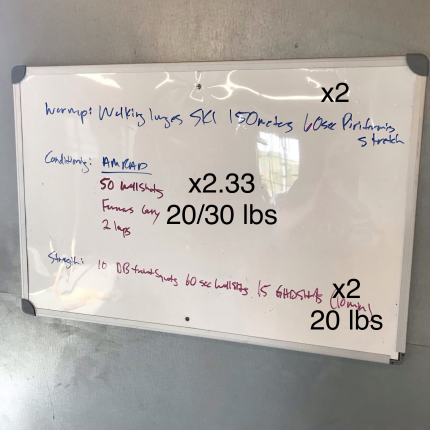 x2
Warmup: Walking lunges SKI 150meters 60sec Piriformis
stretch
Conditioning: AMRAP
50 Wallshots
x2.33
Farmers Carry
20/30 lbs
2 laps
Strength: 10 DB front squats 60 sec wallsits 15 GHDSitups (10min)
x2
20 lbs